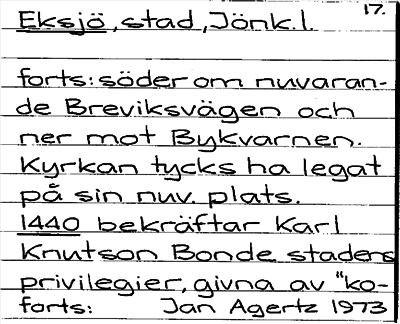 17.
Eksjö, stad, Jönk.l.
forts: söder om nuvaran-
de Breviksvägen och
ner mot Bykvarnen.
Kyrkan tycks ha legat
på sin nuv. plats.
1440 bekräftar Karl
Knutson Bonde staders
privilegier, givna av "ko-
forts: Jan Agertz 1973